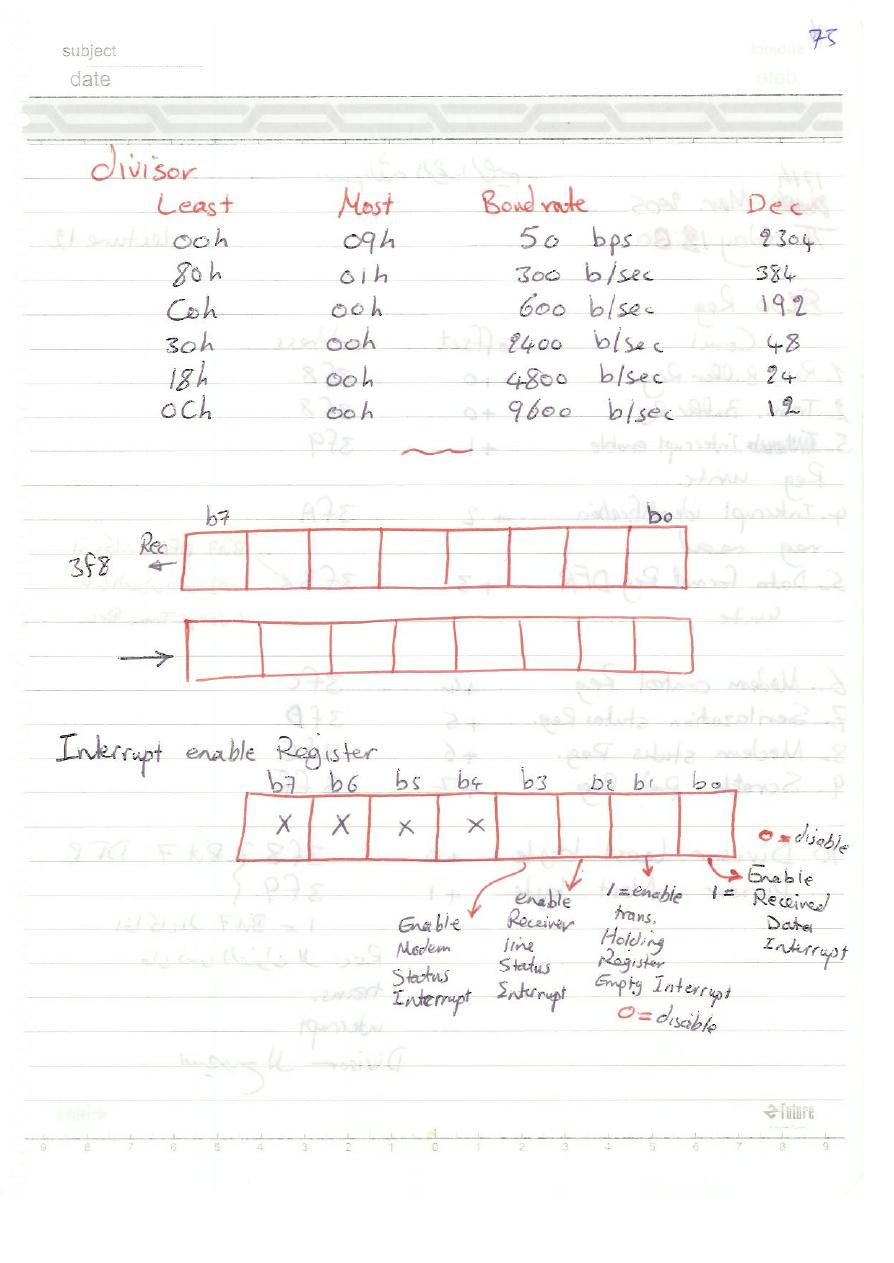 75
subject
date
divisor
Least Most Boud rate Dec
00h 09h 50 bps 2304
80h 01h 300 b/sec 384
C0h 00h 600 b/sec 192
30h 00h 2400 b/sec 48
18h 00h 4800 b/sec 24
0Ch 00h 9600 b/sec 12
b7 b0
3f8 Rec
Interrupt enable Register
b7 b6 b5 b4 b3 b2 b1 b0
X X X X
0 = disable
Enable
Modem
Status
Interrupt
enable
Receiver
line
Status
Interrupt
1 = enable
trans.
Holding
Register
Empty Interrupt
0 = disable
1 = Enable
Received
Data
Interrupt
Future
9 8 7 6 5 4 3 2 1 0 1 2 3 4 5 6 7 8 9